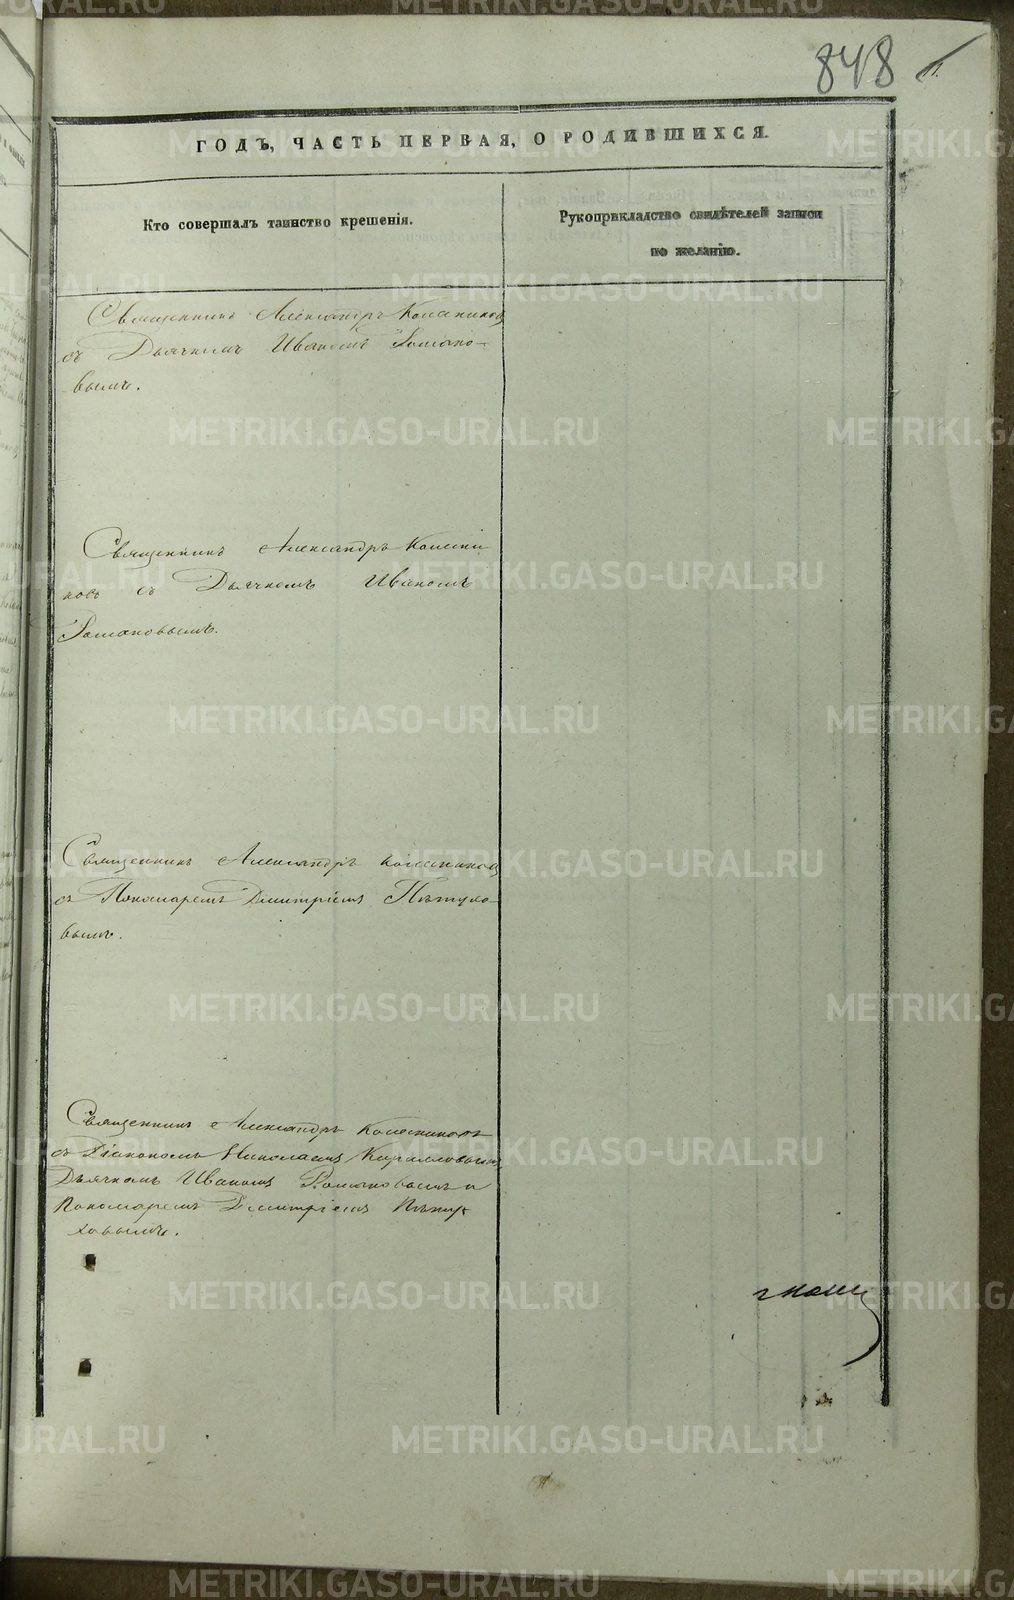 848
ГОДЪ, ЧАСТЬ ПЕРВАЯ, О РОДИВШИХСЯ.
Кто совершалъ таинство крещенія.
Рукоприкладство свидѣтелей записи
по желанію.
Священникъ Александръ Колесниковъ
съ Дьячкомъ Иваномъ Романо-
вымъ.
Священникъ Александръ Колесни
ковъ съ Дьячкомъ Иваномъ
Романовымъ.
Священникъ Александръ Колесниковъ
съ Пономаремъ Димитріемъ Пѣтухо-
вымъ.
Священникъ Александръ Колесниковъ
съ Діакономъ Николаемъ Кирилловымъ
Дьячкомъ Иваномъ Романовымъ и
Пономаремъ Димитріемъ Пѣту
ховымъ.
METRIKI.GASO-URAL.RU